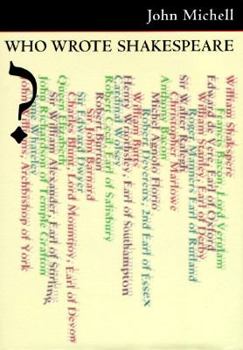 John Michell
WHO WROTE SHAKESPEARE
?
William Shakspere
Francis Bacon, Lord Verulam
Edward de Vere, Earl of Oxford
William Stanley, Earl of Derby
Roger Manners, Earl of Rutland
Sir Walter
Christopher Marlowe
Michel Agnolo Florio
Anthony Bacon
Robert Devereux, 2nd Earl of Essex
William Butts
Henry Wriothesley, Earl of Southampton
Cardinal Wolsey
Robert Cecil, Earl of Salisbury
Robert
Sir John Barnard
Sir Edward Dyer
Charles Blount, Lord Mountjoy, Earl of Devon
Queen Elizabeth
Sir William Alexander, Earl of Stirling
John Richardson of Temple Grafton
Anne Whateley
John Williams, Archbishop of York